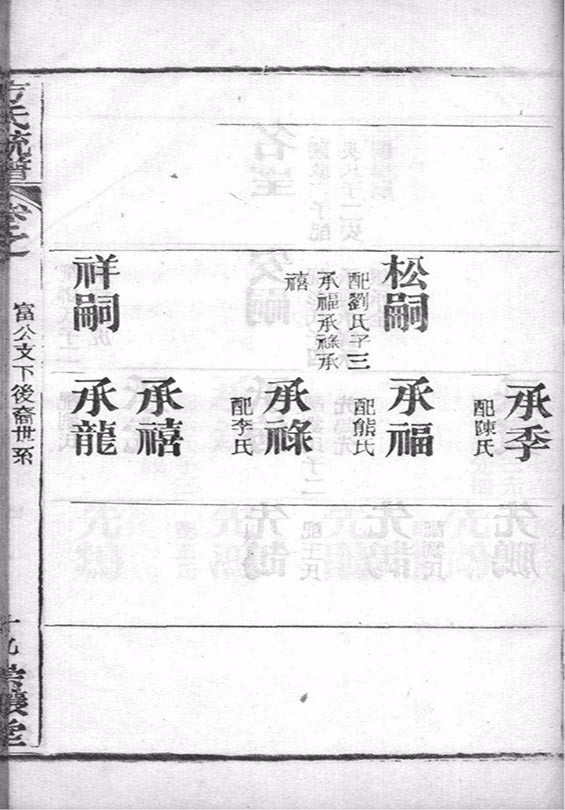 承季
配陳氏
松嗣
配劉氏子三
承福承祿承
禧
承福
配熊氏
承祿
配李氏
承禧
祥嗣
承龍
富公文下後裔世系
方氏統譜
卷之
十九